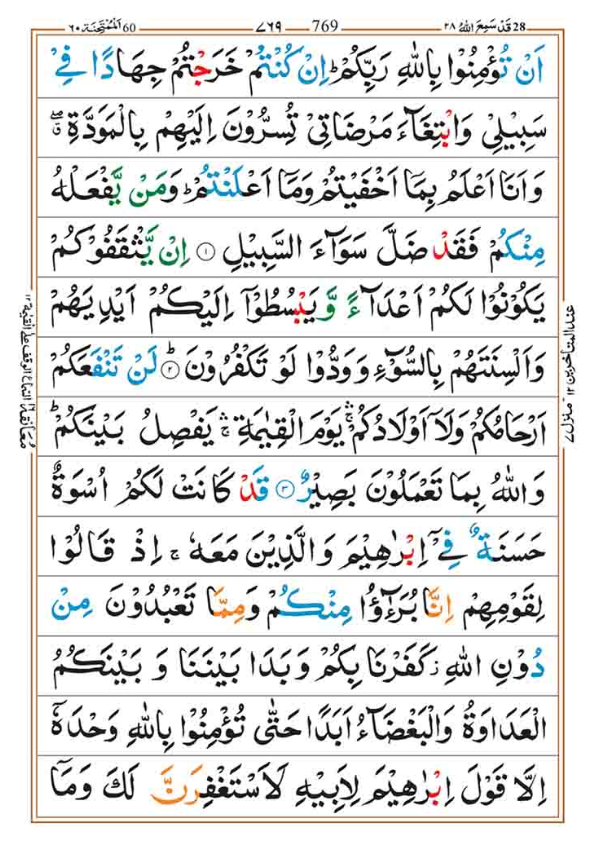 28 قَدْ سَمِعَ اللّٰهُ ٢٨
769 ٧٦٩
60 اَلْمُمْتَحِنَة ٦٠
اَنْ تُؤْمِنُوْا بِاللّٰهِ رَبِّكُمْ ؕ اِنْ كُنْتُمْ خَرَجْتُمْ جِهَادًا فِيْ
سَبِيْلِيْ وَابْتِغَآءَ مَرْضَاتِيْ تُسِرُّوْنَ اِلَيْهِمْ بِالْمَوَدَّةِ ۖ ۗ
وَاَنَا اَعْلَمُ بِمَاۤ اَخْفَيْتُمْ وَمَاۤ اَعْلَنْتُمْ ؕ وَمَنْ يَّفْعَلْهُ
مِنْكُمْ فَقَدْ ضَلَّ سَوَآءَ السَّبِيْلِ ۝١ اِنْ يَّثْقَفُوْكُمْ
يَكُوْنُوْا لَكُمْ اَعْدَآءً وَّ يَبْسُطُوْۤا اِلَيْكُمْ اَيْدِيَهُمْ
وَاَلْسِنَتَهُمْ بِالسُّوْٓءِ وَوَدُّوْا لَوْ تَكْفُرُوْنَ ؕ۝٢ لَنْ تَنْفَعَكُمْ
اَرْحَامُكُمْ وَلَاۤ اَوْلَادُكُمْ ۛۚ يَوْمَ الْقِيٰمَةِ ۛۚ يَفْصِلُ بَيْنَكُمْ ؕ
وَاللّٰهُ بِمَا تَعْمَلُوْنَ بَصِيْرٌ ۝٣ قَدْ كَانَتْ لَكُمْ اُسْوَةٌ
حَسَنَةٌ فِيْۤ اِبْرٰهِيْمَ وَالَّذِيْنَ مَعَهٗ ۚ اِذْ قَالُوْا
لِقَوْمِهِمْ اِنَّا بُرَءٰٓؤُا مِنْكُمْ وَمِمَّا تَعْبُدُوْنَ مِنْ
دُوْنِ اللّٰهِ ؗ كَفَرْنَا بِكُمْ وَبَدَا بَيْنَنَا وَ بَيْنَكُمُ
الْعَدَاوَةُ وَالْبَغْضَآءُ اَبَدًا حَتّٰى تُؤْمِنُوْا بِاللّٰهِ وَحْدَهٗۤ
اِلَّا قَوْلَ اِبْرٰهِيْمَ لِاَبِيْهِ لَاَسْتَغْفِرَنَّ لَكَ وَمَاۤ
عند المتاخرين ١٢
منزل ٧
معانقة